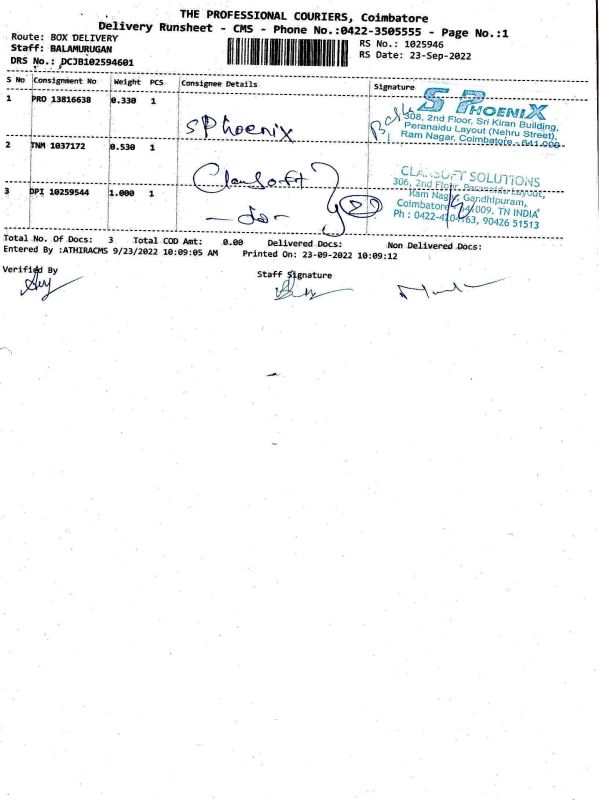 THE PROFESSIONAL COURIERS, Coimbatore
Delivery Runsheet - CMS - Phone No.:0422-3505555 - Page No.:1
Route: BOX DELIVERY
Staff: BALAMURUGAN
DRS No.: DCJB102594601
RS No.: 1025946
RS Date: 23-Sep-2022
S No Consignment No Weight PCS Consignee Details Signature
1 PRO 13816638 0.330 1
SPhoenix
S PHOENIX
308, 2nd Floor, Sri Kiran Building,
Peranaidu Layout (Nehru Street),
Ram Nagar, Coimbatore - 641 009
2 TNM 1037172 0.530 1
Clansoft
CLANSOFT SOLUTIONS
306, 2nd Floor, Peranaidu Layout,
Ram Nagar, Gandhipuram,
Coimbatore 641009. TN INDIA
Ph : 0422-4204163, 90426 51513
3 DPI 10259544 1.000 1
- do -
Total No. Of Docs: 3 Total COD Amt: 0.00 Delivered Docs: Non Delivered Docs:
Entered By :ATHIRACMS 9/23/2022 10:09:05 AM Printed On: 23-09-2022 10:09:12
Verified By
Staff Signature